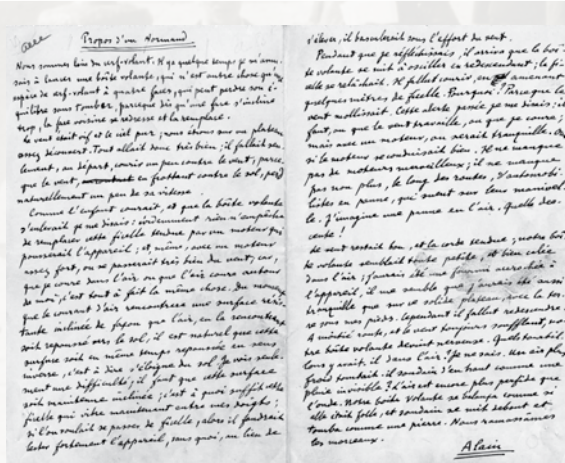 Propos d'un Normand
Nous sommes loin du cerf-volant. Il y a quelque temps je m'amu-
sais à lancer une boîte volante, qui n'est autre chose qu'une
espèce de cerf-volant à quatre faces, qui peut perdre son é-
quilibre sans tomber, parceque dès qu'une face s'incline
trop, la face voisine se redresse et la remplace.
Le vent était vif et le ciel pur; nous étions sur un plateau
assez découvert. Tout allait donc très bien; il fallait seu-
lement, au départ, courir un peu contre le vent, parce-
que le vent, en frottant contre le sol, perd
naturellement un peu de sa vitesse.
Comme l'enfant courait, et que la boîte volante
s'enlevait je me disais: évidemment rien n'empêche
de remplacer cette ficelle tendue par un moteur qui
pousserait l'appareil; et, même, avec un moteur
assez fort, on se passerait très bien du vent; car,
que je coure dans l'air ou que l'air coure autour
de moi, c'est tout à fait la même chose. Du moment
que le courant d'air rencontrera une surface résis-
tante inclinée de façon que l'air, en la rencontrant
soit repoussé vers le sol, il est naturel que cette
surface soit en même temps repoussée en sens
inverse, c'est à dire s'éloigne du sol. Je vois seule-
ment une difficulté; il faut que cette surface
soit maintenue inclinée; c'est à quoi suffit cette
ficelle qui vibre maintenant entre mes doigts;
si l'on voulait se passer de ficelle, alors il faudrait
lester fortement l'appareil, sans quoi, au lieu de
s'élever, il basculerait sous l'effort du vent.
Pendant que je réfléchissais, il arriva que la boî-
te volante se mit à osciller en redescendant; la fi-
celle se relâchait. Il fallut courir, en amenant
quelques mètres de ficelle. Pourquoi? Parceque le
vent mollissait. Cette alerte passée, je me disais; il
faut, ou que le vent travaille, ou que je coure;
mais avec un moteur, on serait tranquille. Oui
si le moteur se conduisait bien. Il ne manque
pas de moteurs merveilleux; il ne manque
pas non plus, le long des routes, d'automobi-
listes en panne, qui suent sur leur manivel-
le. J'imagine une panne en l'air. Quelle des-
cente!
Le vent restait bon, et la corde tendue; notre boî-
te volante semblait toute petite, et bien calée
dans l'air; j'aurais été une fourmi accrochée à
l'appareil, il me semble que j'aurais été aussi
tranquille que sur ce solide plateau, avec la ter-
re sous mes pieds. Cependant il fallut redescendre.
A moitié route, et le vent toujours soufflant, no-
tre boîte volante devint nerveuse. Quels tourbil-
lons y avait-il dans l'air? Je ne sais. Un air plus
froid tombait-il soudain d'en haut comme une
pluie invisible? L'air est encore plus perfide que
l'onde. Notre boîte volante se balança comme si
elle était folle, et soudain se mit debout et
tomba comme une pierre. Nous ramassâmes
les morceaux.
Alain